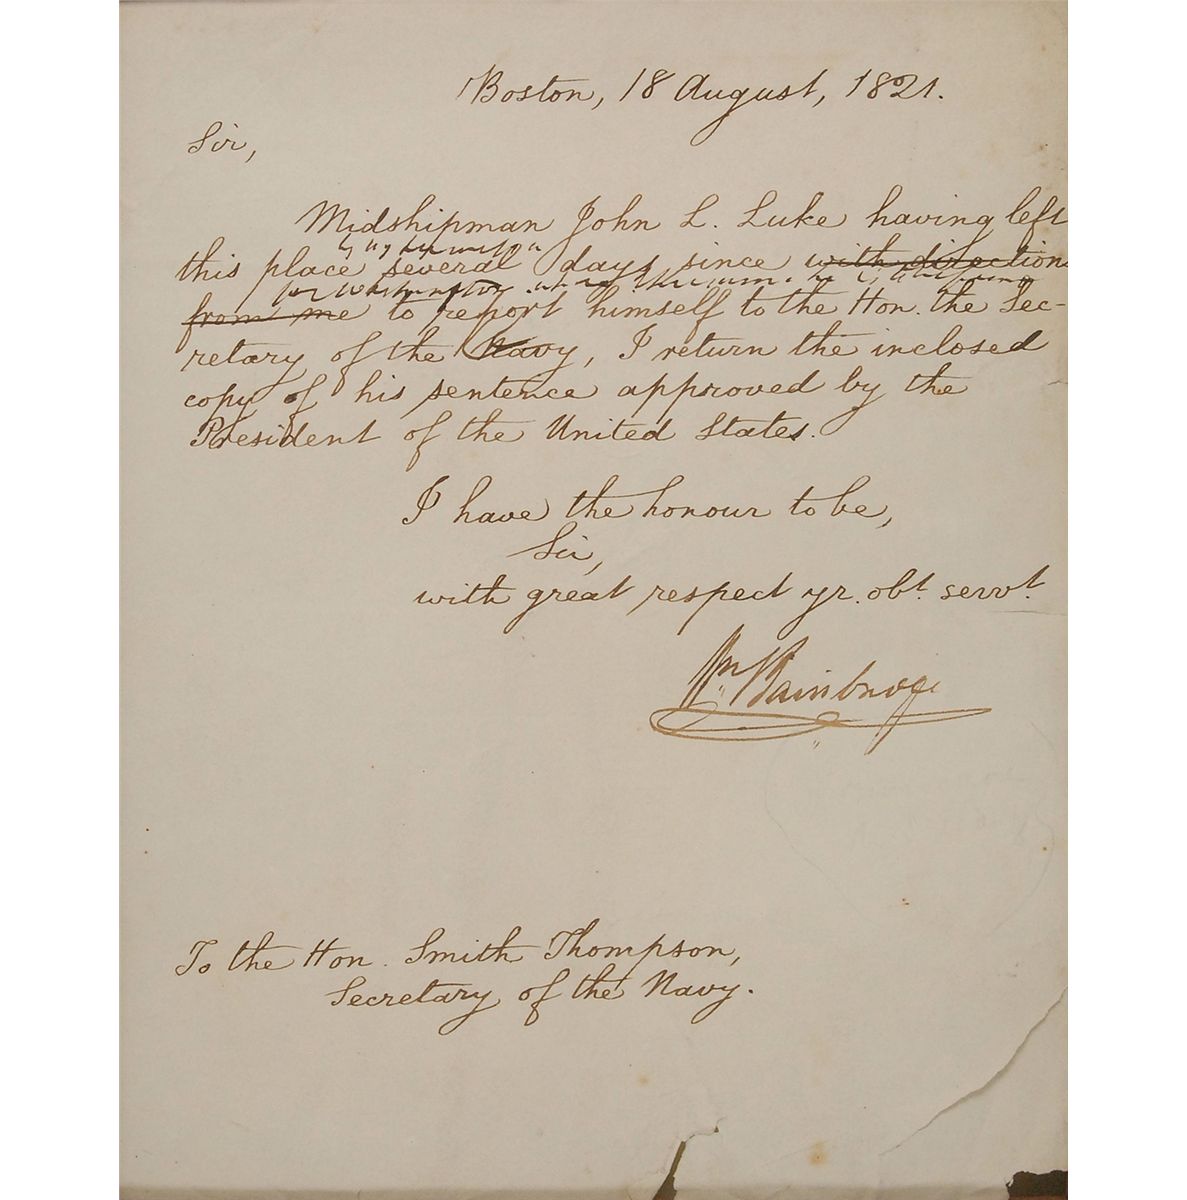 Boston, 18 August, 1821.
Sir,
Midshipman John L. Luke having left
by my permission
this place several days since with directions
for Washington where
from me to report himself to the Hon. the Sec-
retary of the Navy, I return the inclosed
copy of his sentence approved by the
President of the United States.
I have the honour to be,
Sir,
with great respect yr. obt. servt.
Wm Bainbridge
To the Hon. Smith Thompson,
Secretary of the Navy.